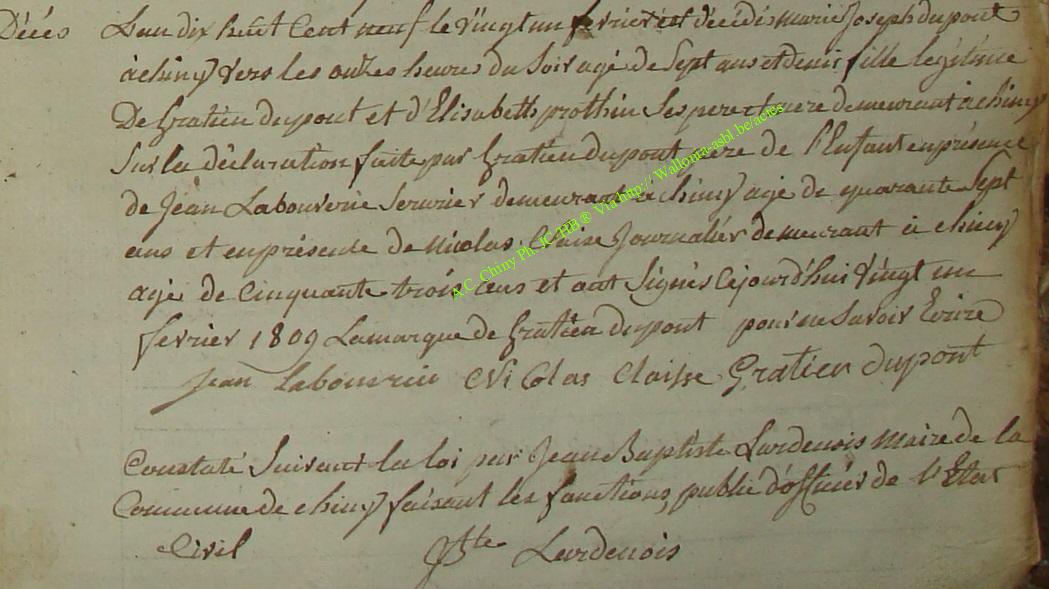 Décés L'an dix huit Cent neuf le Vingt un fevrier est décédé marie Joseph dupont
à chiny vers les onzes heures du Soir agé de Sept ans et demi fille legitime
De Gratien dupont et d'Elisabeth prothin Ses pere et mere demeurant à chiny
Sur la déclaration faite par Gratien dupont pere de l'Enfant en présence
de Jean Labouverie Serurier demeurant à chiny agé de quarante Sept
ans et en présence de Nicolas Claise Journalier demeurant à chiny
agé de Cinquante trois ans et ont Signés Cejourd'hui Vingt un
fevrier 1809 La marque de Gratien dupont pour ne Savoir Ecrire
Jean Labouverie Nicolas Claisse Gratien dupont
Constaté Suivant la loi par Jean Baptiste Lardenois Maire de la
Commune de chiny faisant les fonctions public d'officier de l'Etat
Civil Jbte Lardenois
A.C. Chiny Ph. JC. HB ® Via http:// Wallonia-asbl.be/actes